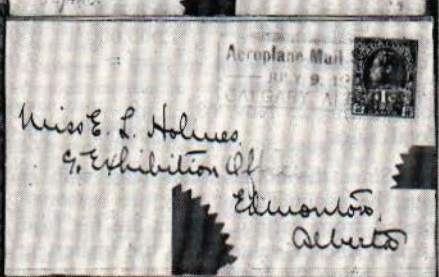 Aeroplane Mail
JULY 9, 19
CALGARY, A
Miss E. L. Holmes,
℅ Exhibition Off
Edmonton,
Alberta